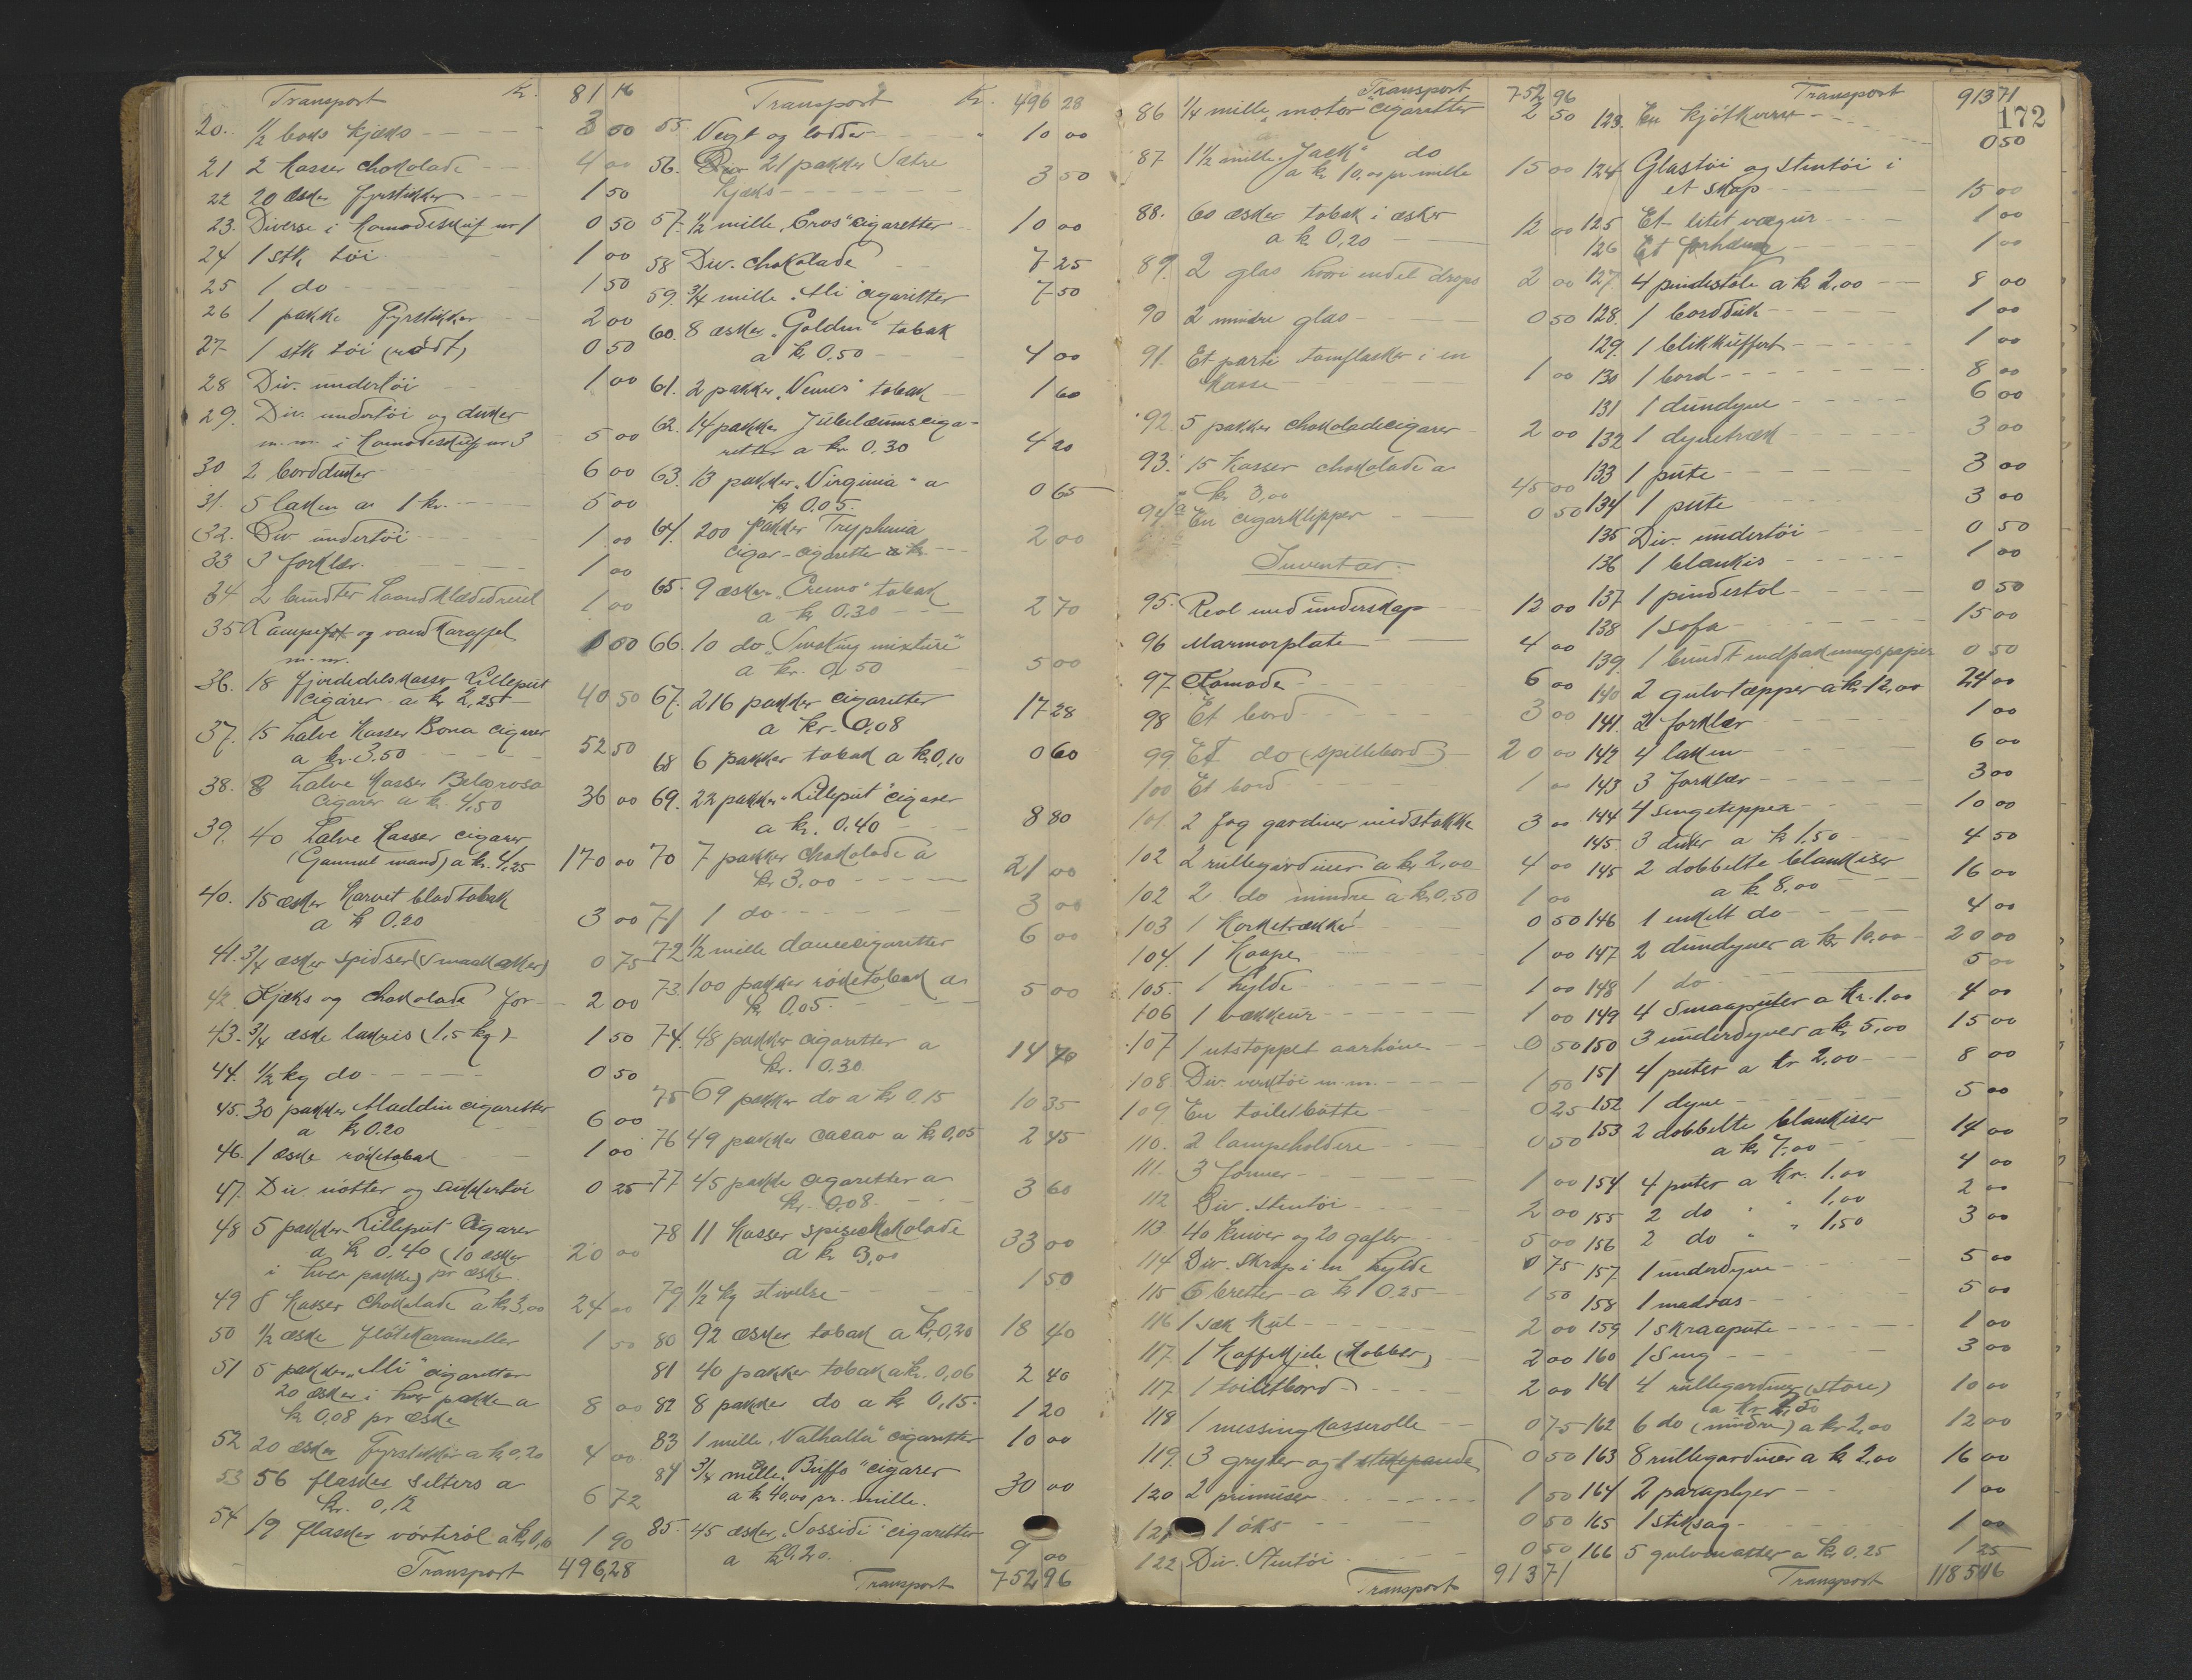 Transport Kr. 81 16
20. 1/2 boks kjæks 3 50
21 2 kasser chokolade 4 00
22 20 æsker fyrstikker 1 50
23. Diverse i komodeskuf nr 1 0 50
24 1 stk tøi 1 00
25 1 do 1 50
26 1 pakke Fyrstikker 2 00
27 1 stk tøi (rødt) 0 50
28 Div. undertøi 1 00
29. Div. undertøi og duker
m.m. i komodeskuf nr 3 5 00
30 2 bordduker 6 00
31. 5 laken a 1 kr. 5 00
32. Div undertøi 1 00
33 3 forklær 1 00
34 2 bundter haandklædedreiel 1 00
35 Lampefot og vandkaraffel
m.m. 1 00
36. 18 fjerdedelskasser Lilleput
cigarer a kr 2,25 40 50
37. 15 halve kasser Bona cigarer
a kr. 3,50 52 50
38. 8 halve kasser Belgrosa
Cigarer a kr 4,50 36 00
39. 40 halve kasser cigarer
(Gammel mand) a kr. 4,25 170 00
40. 15 æsker Karvet bladtobak
a kr 0,20 3 00
41. 3/4 æsker spidser (Smaa æsker) 0 75
42. Kjæks og chokolade for 2 00
43. 3/4 æske lakris (1,5 kg) 1 50
44. 1/2 kg do 0 50
45. 30 pakker Aladdin cigaretter
a kr 0.20 6 00
46. 1 æske røketobak 1 00
47. Div. nøtter og sukkertøi 0 25
48 5 pakker Lilleput Cigarer
a kr 0.40 (10 æsker
i hver pakke) pr æske 20 00
49 8 kasser Chokolade a kr 3,00 24 00
50 1/2 æske fløtekarameller 1 50
51 5 pakker "Mi" cigaretter
20 æsker i hver pakke a
kr 0,08 pr æske 8 00
52 20 æsker Fyrstikker a kr 0,20 4 00
53 56 flasker selters a
kr. 0,12 6 72
54 19 flasker vørterøl a kr 0,10 1 90
Transport 496,28
Transport Kr. 496 28
55. Vegt og lodder 10 00
56. 21 pakker Sætre
kjæks 3 50
57. 1/2 mille "Eros" cigaretter 10 00
58 Div. chokolade 7 25
59. 3/4 mille "Mi" cigaretter 7 50
60. 8 æsker "Golden" tobak
a kr 0,50 4 00
61. 2 pakker "Venus" tobak 1 60
62. 14 pakker Jubelæumsciga-
retter a kr 0.30 4 20
63. 13 pakker "Virginia" a
kr 0.05. 0 65
64. 200 pakker Tryphenia
cigar-cigaretter a kr 2 00
65. 9 æsker "Cremo" tobak
a kr 0.30 2 70
66. 10 do "Smoking mixture"
a kr. 0,50 5 00
67. 216 pakker cigaretter
a kr. 0,08 17 28
68 6 pakker tobak a kr 0,10 0 60
69. 22 pakker "Lilleput" cigarer
a kr. 0.40 8 80
70 7 pakker chokolade a
kr 3,00 21 00
71 1 do 3 00
72 1/2 mille damecigaretter 6 00
73. 100 pakker røketobak a
kr 0,05. 5 00
74. 48 pakker cigaretter a
kr. 0.30. 14 40
75 69 pakker do a kr 0.15 10 35
76 49 pakker cacao a kr 0,05 2 45
77 45 pakke cigaretter a
kr. 0,08. 3 60
78 11 kasser spisechokolade
a kr 3,00 33 00
79 1/2 kg stivelse 1 50
80 92 æsker tobak a kr 0,20 18 40
81 40 pakker tobak a kr. 0,06 2 40
82 8 pakker do a kr 0,15. 1 20
83 1 mille "Valhalla" cigaretter 10 00
84 3/4 mille "Buffo" cigarer
a kr 40,00 pr. mille. 30 00
85. 45 æsker "Sossidi" cigaretter
a kr 0,20. 9 00
Transport 752 96
Transport 752 96
86 1/4 mille "motor" cigaretter 2 50
87 1 1/2 mille "Jack" do
a kr 10,00 pr mille 15 00
88. 60 æsker tobak i æsker
a kr 0,20 12 00
89. 2 glas hvori endel drops 2 00
90 2 mindre glas 0 50
91. Et parti tomflasker i en
kasse 1 00
92. 5 pakker chokoladecigarer 2 00
93. 15 kasser chokolade a
kr. 3,00 45 00
94 a En cigarklipper 0 50
Inventar.
95. Reol med underskap 12 00
96 Marmorplate 4 00
97. Komode 6 00
98 Et bord 3 00
99. Et do (spillebord) 20 00
100 Et bord 1 00
101. 2 fag gardiner med stokke 3 00
102 2 rullegardiner a kr 2,00 4 00
102 2 do mindre a kr 0,50 1 00
103 1 Korketrækker 0 50
104. 1 Kaape 1 00
105. 1 hylde 1 00
106 1 vækkeur 1 00
107 1 utstoppet aarhøne 0 50
108 Div. verktøi m.m. 1 50
109. En toiletbøtte 0 25
110. 2 lampeholdere 0 50
111. 3 former 1 00
112 Div. stentøi 2 00
113. 40 kniver og 20 gafler 5 00
114 Div. skrap i en hylde 0 75
115 6 bretter a kr 0.25 1 50
116 1 sæk kul 2 00
117. 1 Kaffekjele (Kobber) 2 00
117. 1 toiletbord 2 00
118 1 messingkasserolle 0 75
119. 3 gryter og 1 stekepande 0 50
120 2 primuser 1 50
121 1 øks 0 50
122 Div. Stentøi 0 50
Transport 913 71
Transport 913 71
172
123. En kjøtkvern 0 50
124 Glastøi og stentøi i
et skap 15 00
125 Et litet vægur 1 00
126 Et forhæng 1 00
127. 4 pindestole a kr 2,00 8 00
128. 1 bordduk 1 00
129. 1 blikkuffert 1 00
130 1 bord 8 00
131 1 dundyne 6 00
132 1 dynetræk 3 00
133 1 pute 3 00
134 1 pute 3 00
135 Div. undertøi 0 50
136 1 blankis 1 00
137 1 pindestol 0 50
138 1 sofa 15 00
139. 1 bundt indpakningspapir 0 50
140 2 gulvtæpper a kr 12,00 24 00
141. 2 forklær 1 00
142 4 laken 6 00
143 3 Forklær 3 00
144 4 sengetepper 10 00
145. 3 duker a kr 1,50 4 50
145 2 dobbelte blankiser
a kr. 8,00 16 00
146 1 enkelt do 4 00
147 2 dundyner a kr 10,00 20 00
148 1 do 5 00
149 4 Smaaputer a kr. 1.00 4 00
150 3 underdyner a kr 5,00 15 00
151 4 puter a kr 2,00 8 00
152 1 dyne 5 00
153 2 dobbelte blankiser
a kr 7,00 14 00
154 4 puter a kr. 1.00 4 00
155 2 do " " 1,00 2 00
156 2 do " " 1,50 3 00
157. 1 underdyne 5 00
158 1 madras 5 00
159 1 skraapute 1 00
160 1 Seng 3 00
161 4 rullegardiner (store)
a kr 2,50 10 00
162 6 do (mindre) a kr 2,00 12 00
163 8 rullegardiner a kr 2,00 16 00
164 2 paraplyer 1 00
165 1 stiksag 1 00
166 5 gulvmatter a kr 0,25 1 25
Transport 1185 46